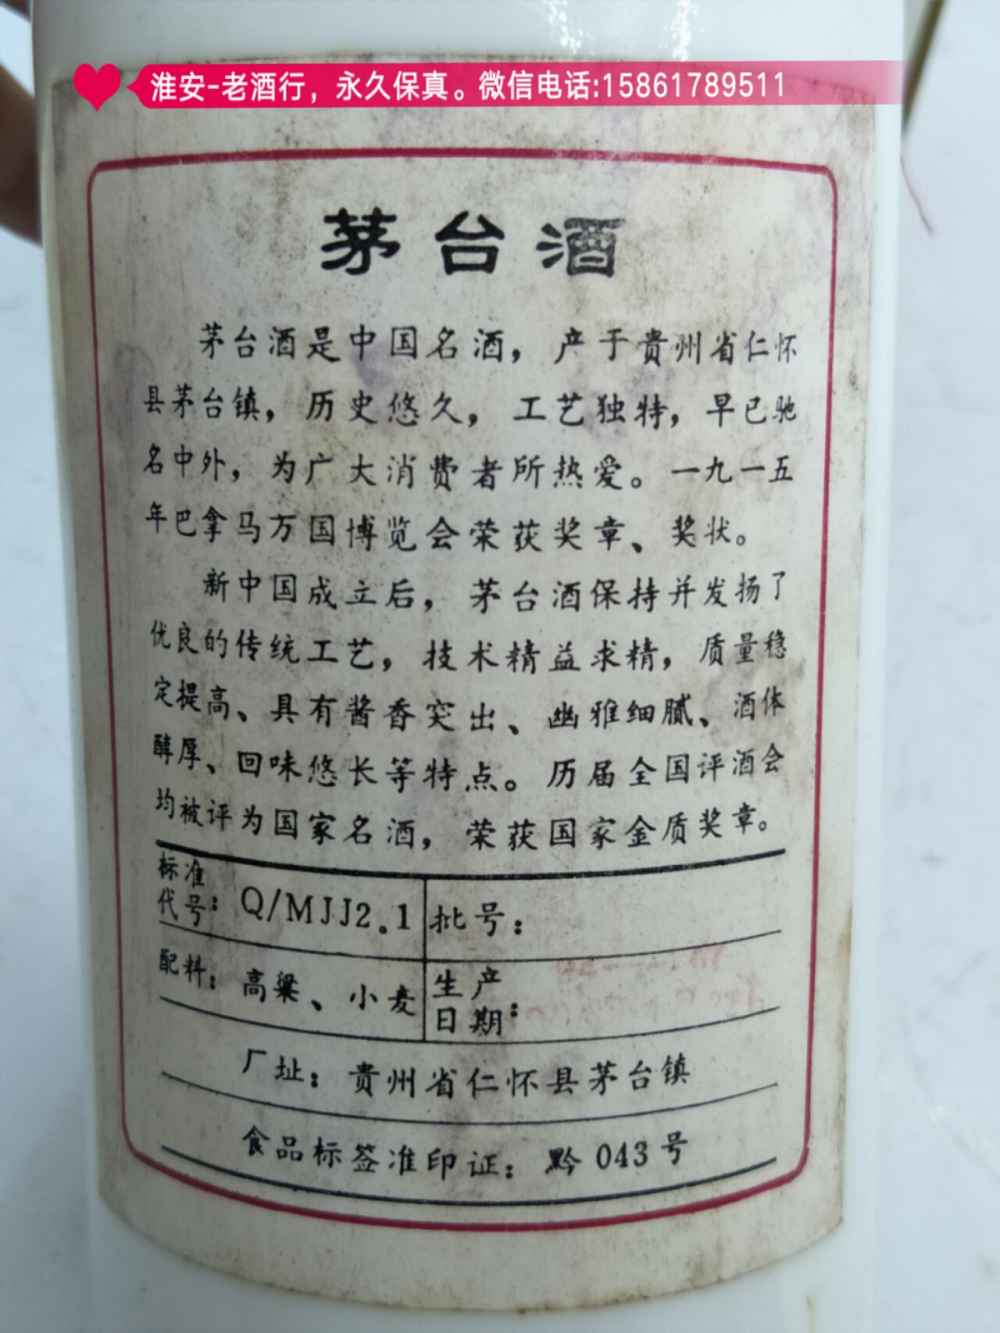 淮安-老酒行，永久保真。微信电话:15861789511
茅台酒
茅台酒是中国名酒，产于贵州省仁怀
县茅台镇，历史悠久，工艺独特，早已驰
名中外，为广大消费者所热爱。一九一五
年巴拿马万国博览会荣获奖章、奖状。
新中国成立后，茅台酒保持并发扬了
优良的传统工艺，技术精益求精，质量稳
定提高、具有酱香突出、幽雅细腻、酒体
醇厚、回味悠长等特点。历届全国评酒会
均被评为国家名酒，荣获国家金质奖章。
标准代号：Q/MJJ2.1 批号：
配料：高粱、小麦 生产日期：
厂址：贵州省仁怀县茅台镇
食品标签准印证：黔043号